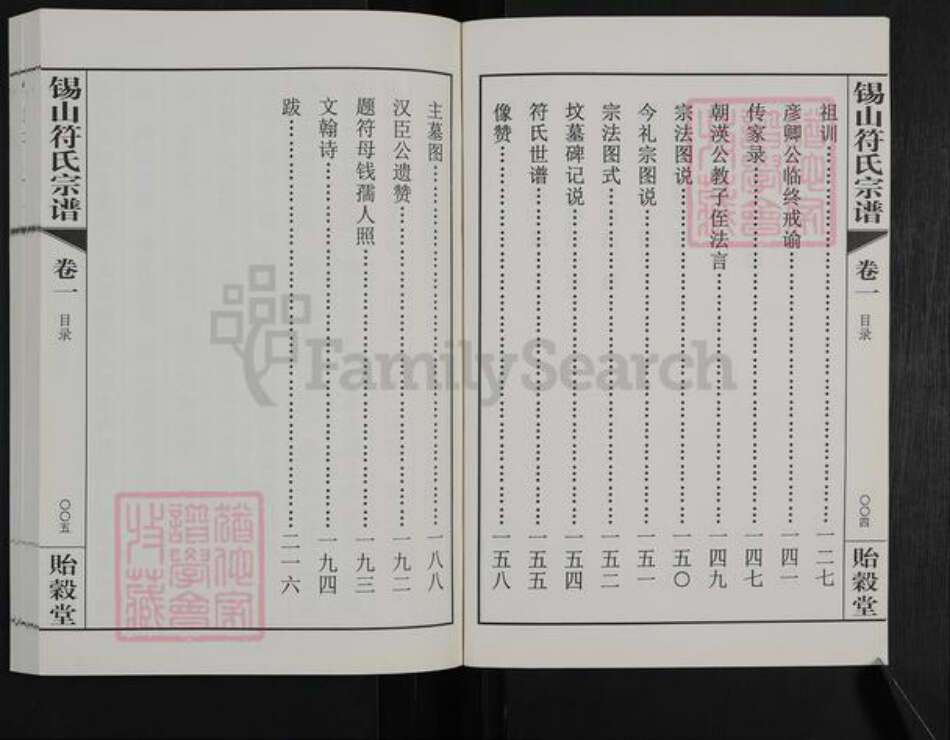 锡山符氏宗谱
卷一
目录
〇〇四
贻縠堂
祖训 一二七
彦卿公临终戒谕 一四一
传家录 一四七
朝渶公教子侄法言 一四九
宗法图说 一五〇
今礼宗图说 一五一
宗法图式 一五二
坟墓碑记说 一五四
符氏世谱 一五五
像赞 一五八
主墓图 一八八
汉臣公遗赞 一九二
题符母钱孺人照 一九三
文翰诗 一九四
跋 二一六
锡山符氏宗谱
卷一
目录
〇〇五
贻縠堂
FamilySearch